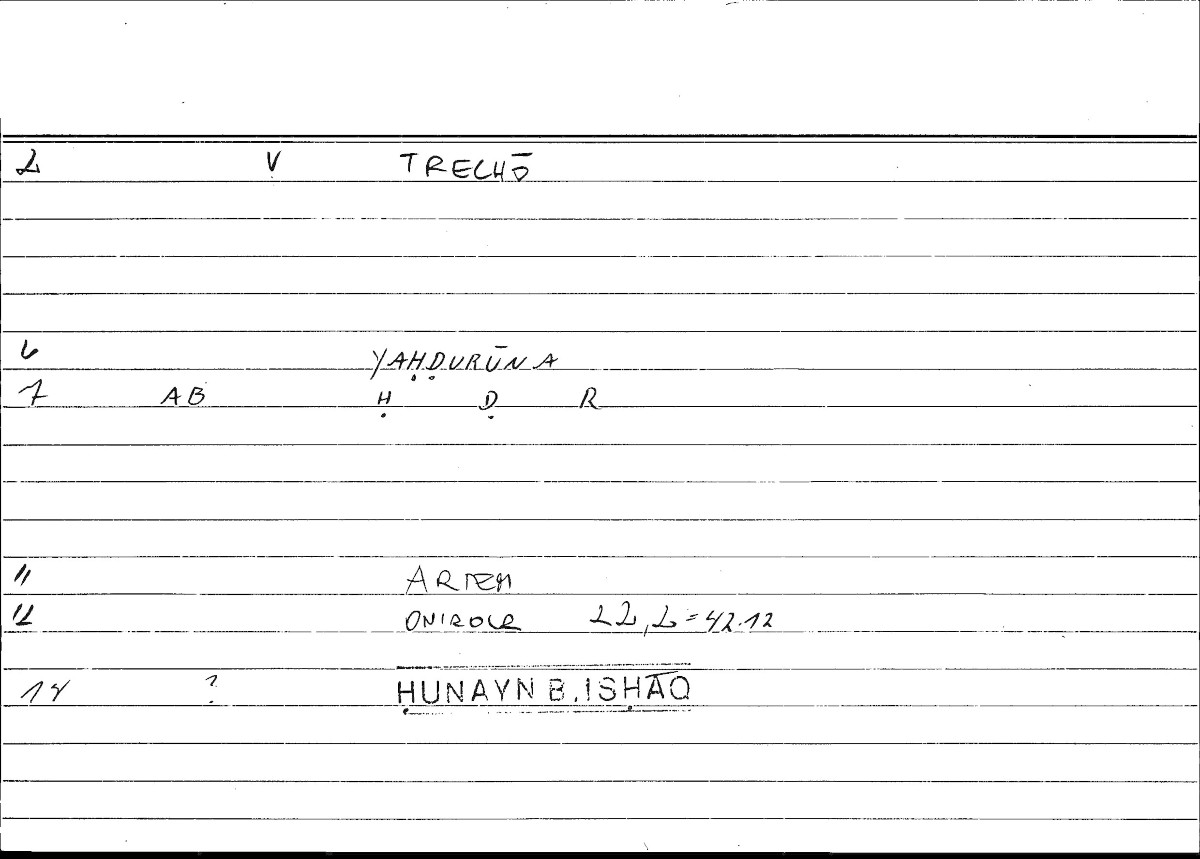 2 V TRECHŌ
6 YAḤḌURŪNA
7 AB Ḥ Ḍ R
11 ARTEM
12 ONIROCR 22,2=42.12
14 ? ḤUNAYN B. ISḤĀQ